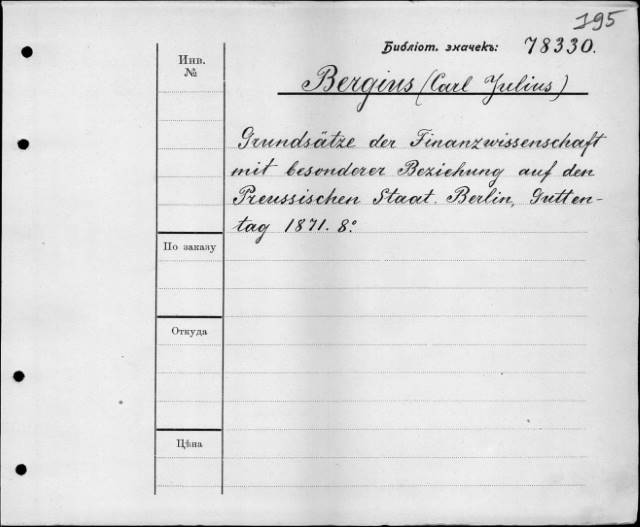 195
Библіот. значекъ: 78330.
Инв.
№
Bergius (Carl Julius)
Grundsätze der Finanzwissenschaft
mit besonderer Beziehung auf den
Preussischen Staat. Berlin, Gutten-
tag 1871. 8º
По заказу
Откуда
Цѣна